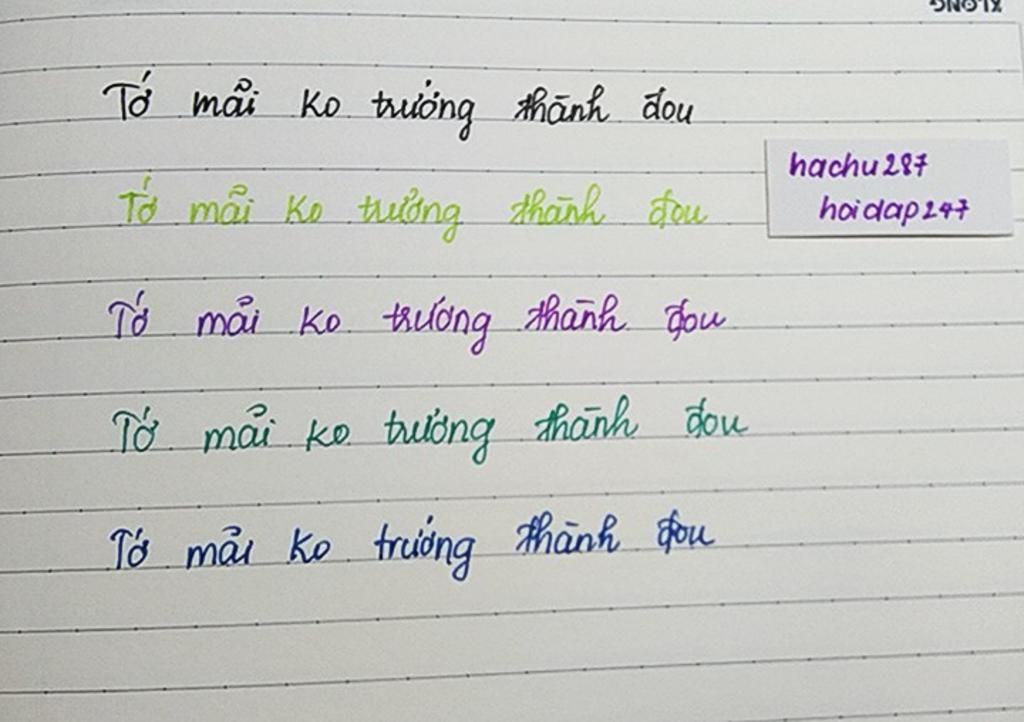 XLONG
Tớ mãi ko trưởng thành đou
hachu287
hoidap247
Tớ mãi ko trưởng thành đou
Tớ mãi ko trưởng thành đou
Tớ mãi ko trưởng thành đou
Tớ mãi ko trưởng thành đou